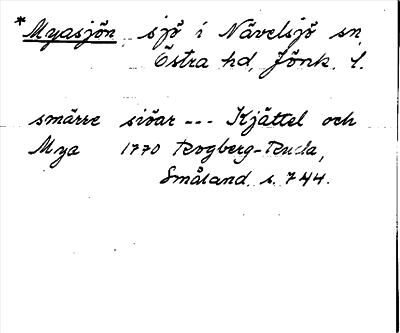 *Myasjön, sjö i Nävelsjö sn,
Östra hd, Jönk. l.
smärre siöar --- Kjättel och
Mya 1770 Rogberg-Ruda,
Småland, s. 744.